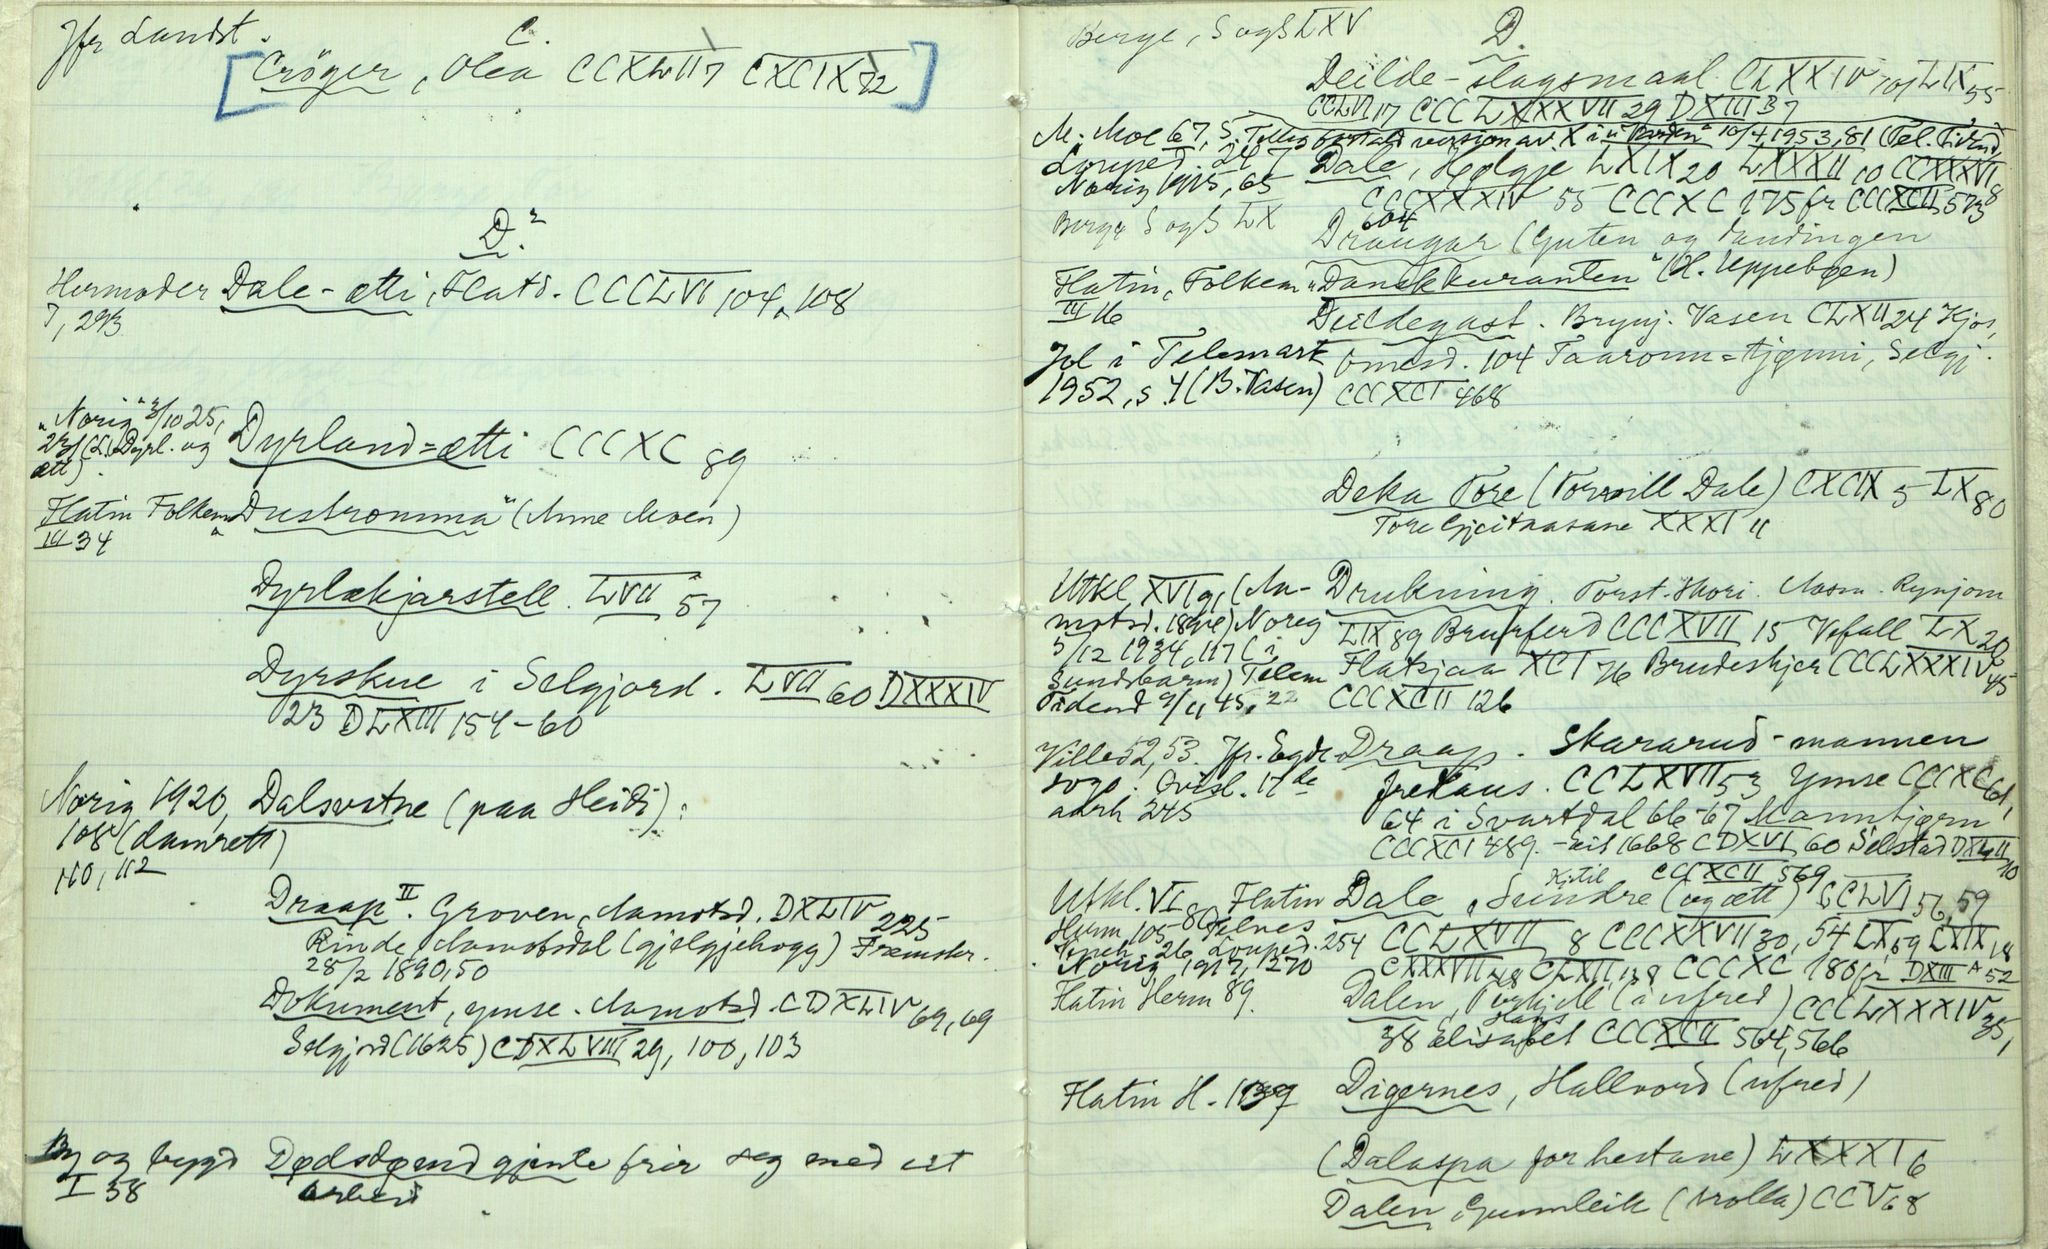 Jfr Landst.
C.
[Crøger, Olea CCXLVII 7 CXCIX 72]
D.2
Hermoder Dale-ætti, Flatd. CCCLVI 104, 108
7, 293
"Norig" 3/10 25,
23/ (L. Dyrl. og Dyrland=ætti CCCXC 89
ætt)
Flatin Folkem "Dustromma" (Anne Moen)
III 34
Dyrlækjarstell. LVII 57
Dyrskue i Selgjord. LVII 60 DXXXIV
23 DLXIII 154-60
Norig 1920, Dalsvatne (paa Heidi):
108 (lamrett)
110, 112
Draap II. Groven, Aamotsd. DXLIV 225
Rinde, Aamotsdal (gjelgjehogg) Fremskr.
28/2 1890, 50
Dokument, ymse. Aamotsd. CDXLIV 69, 69
Selgjord (1625) CDXLVIII 29, 100, 103
By og bygd Dødsdømd gjente frir seg med eit
I 38 arbeid
Berge, Sogs LXV D.
Deilde-slagsmaal CLXXIV 101 LIX 55
CCLVI 17 CCCLXXXVII 29 DXIII B 7
M. Moe 67, 5. version av X i "Varden" 10/4 1953, 81 (Tel. Tidend
Louped. 247 Dale, Helgje LXIX 20 LXXXII 10 CCXXXVI 8
Norig 1915, 65 CCCXXXIV 55 CCCXC 175 fr CCCXCII 573
604
Berge Sogs LX Draugar (Guten og
Flatin, Folkem "Danskkuranten" (H. Uppebøen)
III 16 Deildegast. Brynj. Vasen CLXII 24 Kjos,
Jol i Telemark Omesd. 104 Taaronn=tjønni, Selgj.
1952, s. 4 (B. Vasen) CCCXCI 468
Deka Tore (Torvill Dale) CXCIX 5 LX 80
Tore Gjeitaasane XXXI 11
Utkl XVI 9, (Aa- Drukning. Torst. Skori. Aasm. Rynjom
motsd. ) Noreg LIX 89 Brurferd CCCXVII 15 Vefall LX 20
5/12 1934, 117 (i Flatsjaa XCI 76 Brudeskjer CCCLXXXIV 45
Sundsbarm) Telem
Tidend 9/11 45, 22 CCCXCII 126
Villa 52, 53. Jfr. Egde- Draap. Skararud-mannen
soge. Kvisl. 17de fredlaus. CCLXVII 53 Ymse CCCXC 61,
aarh 245 64 i Svartdal 66-67 Mannbjørn
CCCXCI 489. -eit 1668 CDXVI 60 Selstad DXLII 10
Kitil CCCXCII 569
Utkl. VI, Flatin Dale, Sundre (og ætt) CCLVI 56, 59
Herm 105 Louped. 254 CCLXVII 8 CCCXXVII 30, 54 LX, 59 LXIX 18
Norig 1917, 1270 CXXXVII 48 CLXII, 138 CCCXC 180 fr DXIII A 52
Flatin Herm 89. Dalen, Torkjell (i ufred) CCCLXXXIV 35,
Hans
38 Elisabet CCCXCII 564, 566
Flatin H. 139 Digernes, Hallvord (ufred)
(Dalaspa for hestane) LXXXI 6
Dalen, Gunnleik (trolla) CCV 68